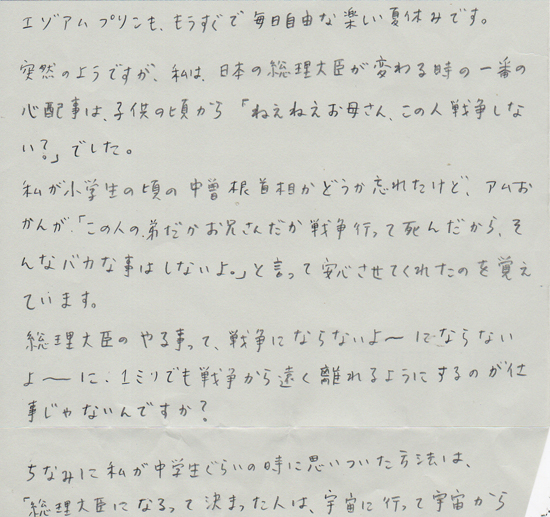 エゾアムプリンも、もうすぐで毎日自由な楽しい夏休みです。
突然のようですが、私は、日本の総理大臣が変わる時の一番の
心配事は、子供の頃から「ねえねえお母さん、この人戦争しな
い?」でした。
私が小学生の頃の中曽根首相かどうか忘れたけど、アムお
かんが、「この人の、弟だかお兄さんだか戦争行って死んだから、そ
んなバカな事はしないよ。」と言って安心させてくれたのを覚え
ています。
総理大臣のやる事って、戦争にならないよ〜にならない
よ〜に、1ミリでも戦争から遠く離れるようにするのが仕
事じゃないんですか?
ちなみに私が中学生ぐらいの時に思いついた方法は、
「総理大臣になるって決まった人は、宇宙に行って宇宙から